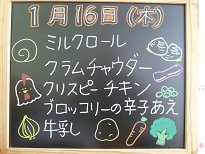 1月16日(木)
ミルクロール
クラムチャウダー
クリスピーチキン
ブロッコリーの辛子あえ
牛乳し